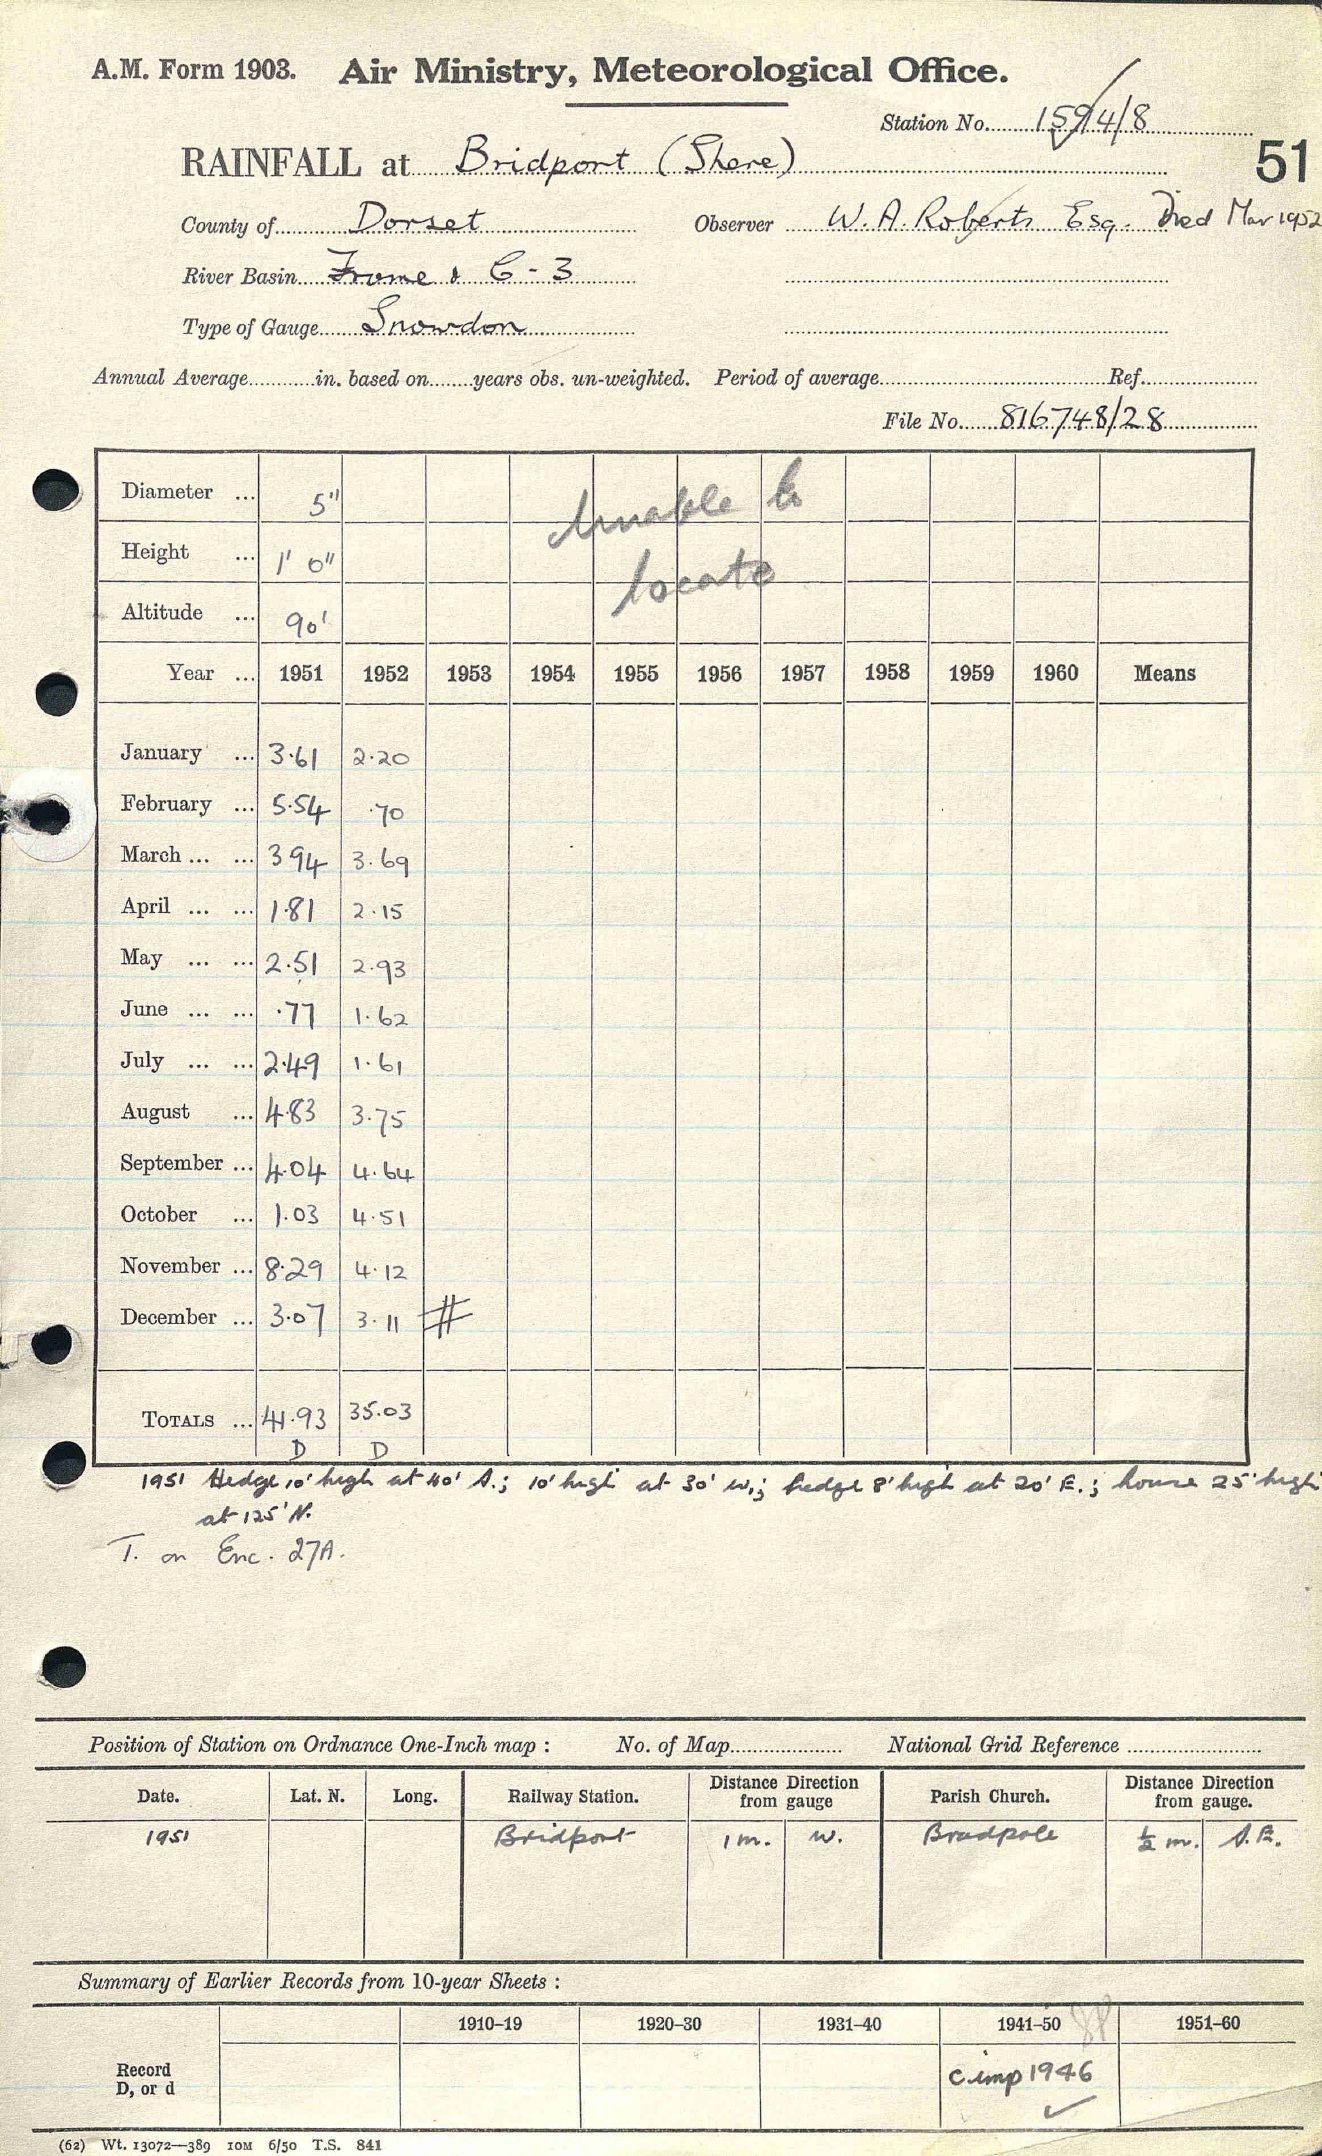 A.M. Form 1903. Air Ministry, Meteorological Office.
Station No. 1594/8
51
RAINFALL at Bridport (Shere)
County of Dorset Observer W. A. Roberts Esq. Died Mar 1952
River Basin Frome & C-3
Type of Gauge Snowdon
Annual Average in. based on years obs. un-weighted. Period of average Ref.
File No. 816748/28
Diameter ... 5"
Unable to
Height ... 1' 0"
locate
Altitude ... 90'
Year ... 1951 1952 1953 1954 1955 1956 1957 1958 1959 1960 Means
January ... 3.61 2.20
February ... 5.54 .70
March ... ... 3 94 3.69
April ... ... 1.81 2.15
May ... ... 2.51 2.93
June ... ... .77 1.62
July ... ... 2.49 1.61
August ... 4.83 3.75
September ... 4.04 4.64
October ... 1.03 4.51
November ... 8.29 4.12
December ... 3.07 3.11 #
TOTALS ... 41.93 35.03
D D
1951 Hedge 10' high at 40' S.; 10' high at 30' W.; hedge 8' high at 20' E.; house 25' high
at 125' N.
T. on Enc. 27A.
Position of Station on Ordnance One-Inch map : No. of Map National Grid Reference
Date. Lat. N. Long. Railway Station. Distance Direction from gauge Parish Church. Distance Direction from gauge.
1951 Bridport 1 m. W. Bradpole ½ m. S.E.
Summary of Earlier Records from 10-year Sheets :
1910–19 1920–30 1931–40 1941–50 1951–60
Record
D, or d
c.imp 1946
(62) Wt. 13072—389 10M 6/50 T.S. 841